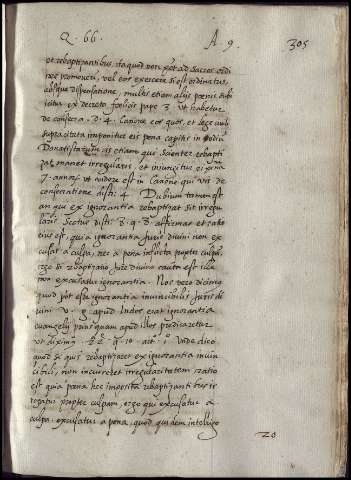 Q. 66. A. 9. 305
et rebaptizantibus, ita quod non pot ad sacros ordi
nes promoveri, vel eos exercere si est ordinatus,
absque dispensatione, multis etiam aliis poenis subi
icitur ex decreto foelicis pape 3 ut habetur
de consecra. d. 4. Canone eos quos, et lege
imponitur eis pena capitis in odiu
Donatistarum, is etiam qui scienter rebapti
zat manet irregularis et iniungitur ei
7. annoR ut videre est in Canone qui vis de
consecratione dist. 4. Dubium tamen est
an qui ex ignorantia rebaptizat sit irregu
laris. Scotus dist. 6. q. 8. affirmat et ratio
eius est, quia ignorantia Juris divini non ex
cusat a culpa, nec a pena inflicta propter culpa,
ergo si rebaptizans Jure divino est ille
non excusatur ignorantia. Nos vero dicimus
quod pot esse ignorantia invincibilis Juris di
vini v. g. apud Indos erat ignorantia
evangelii priusquam apud illos predicaretur
ut diximus 2ª 2ę q. 10. art. 1º Unde dico
quod si quis rebaptizaret ex ignorantia invin
cibili, non incurreret irregularitatem ratio
est quia pena hec imposita rebaptizanti fuit ir
rogata propter culpam, ergo qui excusatur a
culpa, excusatur a pena, quod quidem intelligo
20